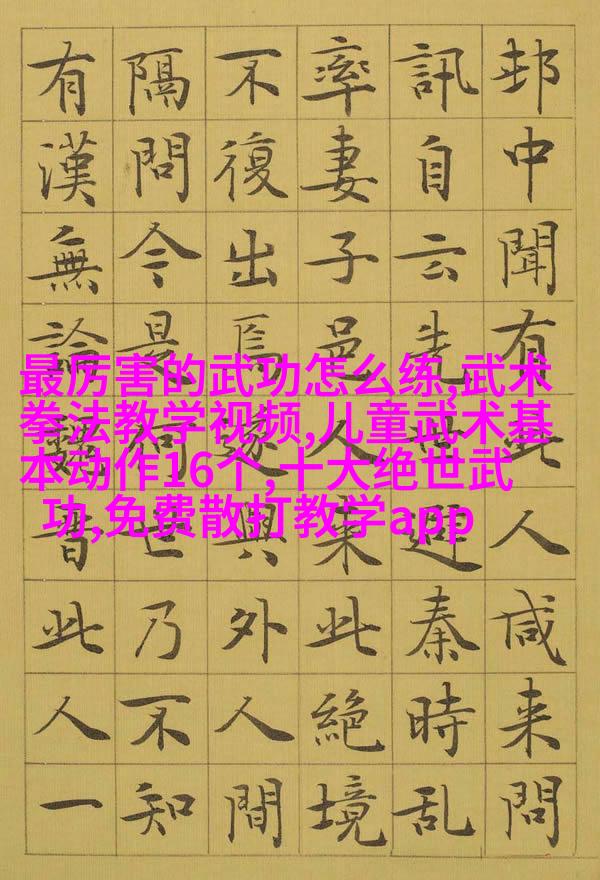 邨中聞有此人咸来問
訊自云先世避秦時乱
率妻子邑人来此絶境
不復出焉遂與外人間
隔問今是何世乃不知
有漢無論魏晋此人一
最厉害的武功怎么练,武术
拳法教学视频,儿童武术基
本动作16个,十大绝世武
功,免费散打教学app